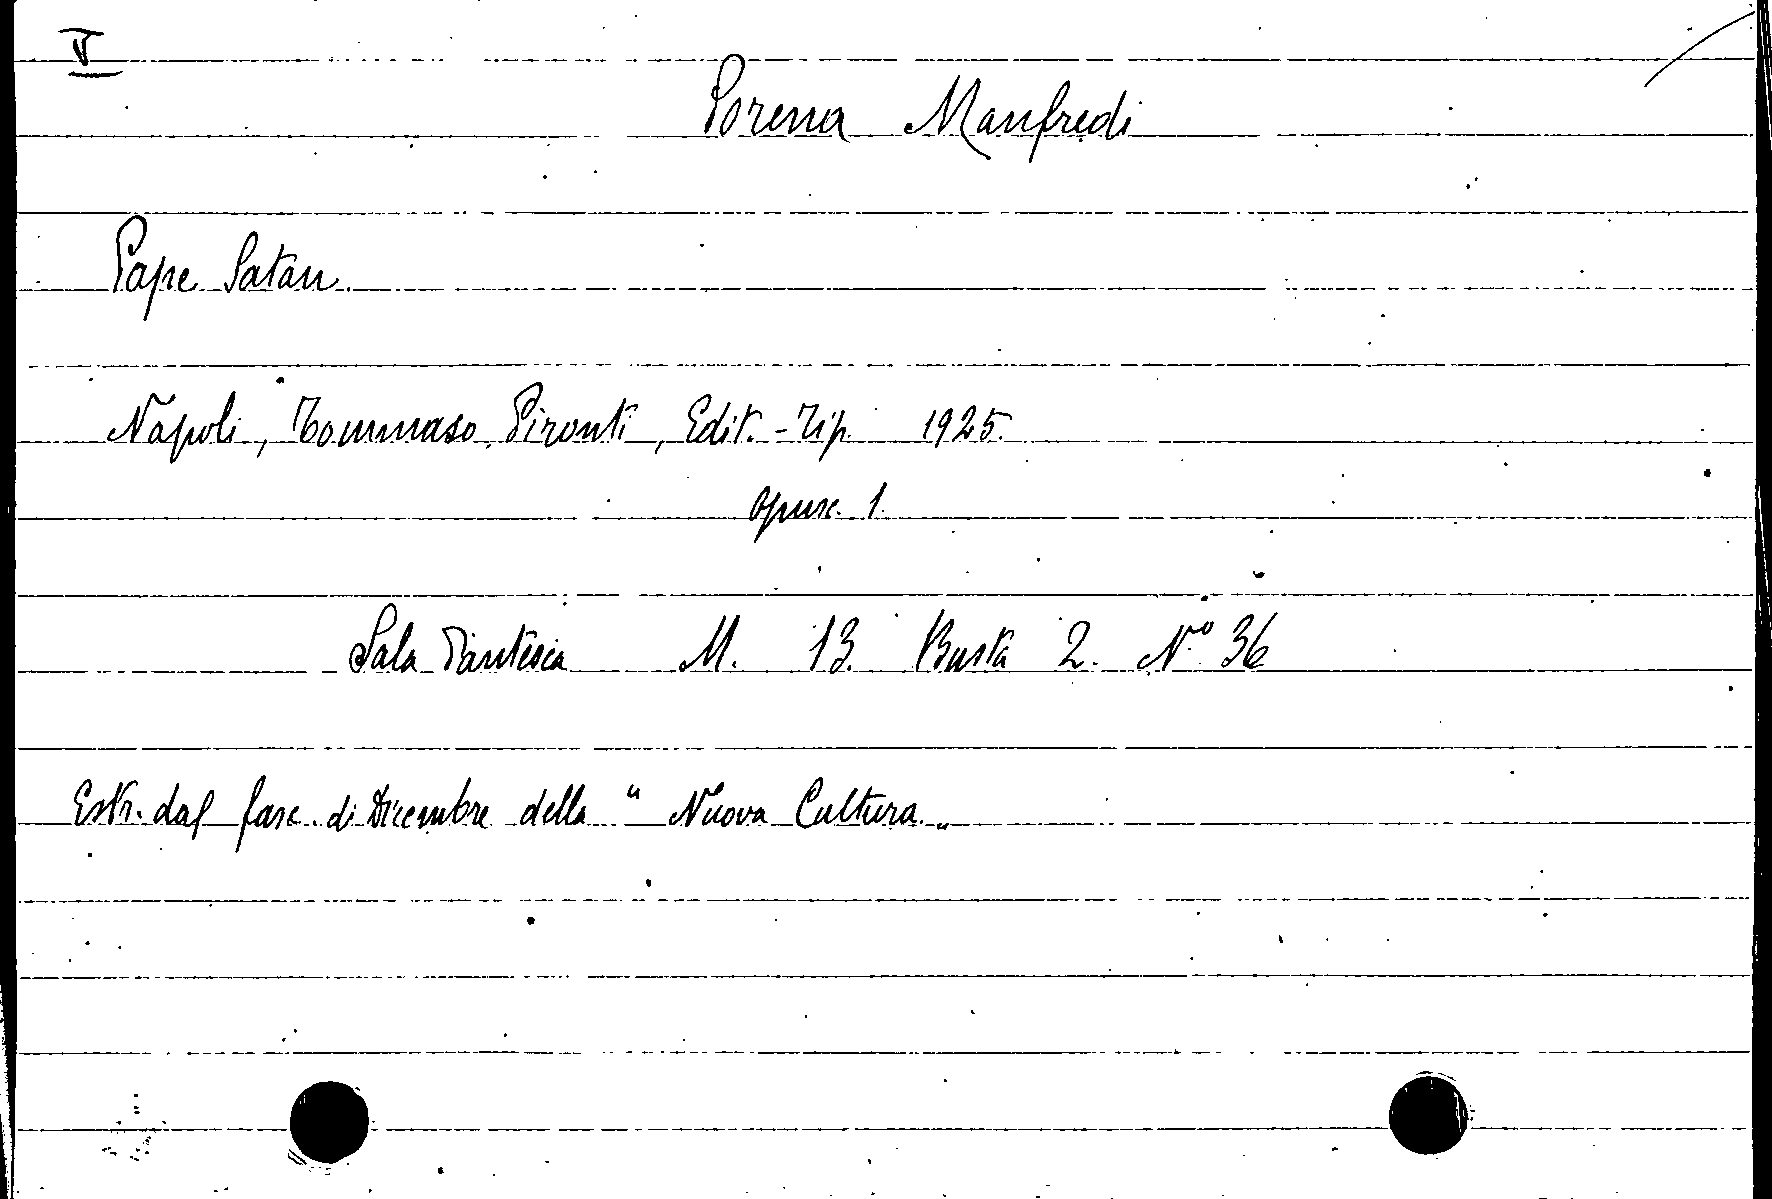 V
Porena Manfredi
Pape Satan.
Napoli, Tommaso Pironti, Edit.-Tip. 1925.
opusc. 1.
Sala Dantesca M. 13. Busta 2. Nº 36
Estr. dal fasc. di Dicembre della " Nuova Cultura. „